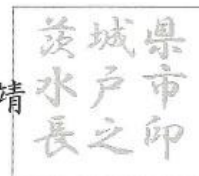 靖
茨城県
水戸市
長之印